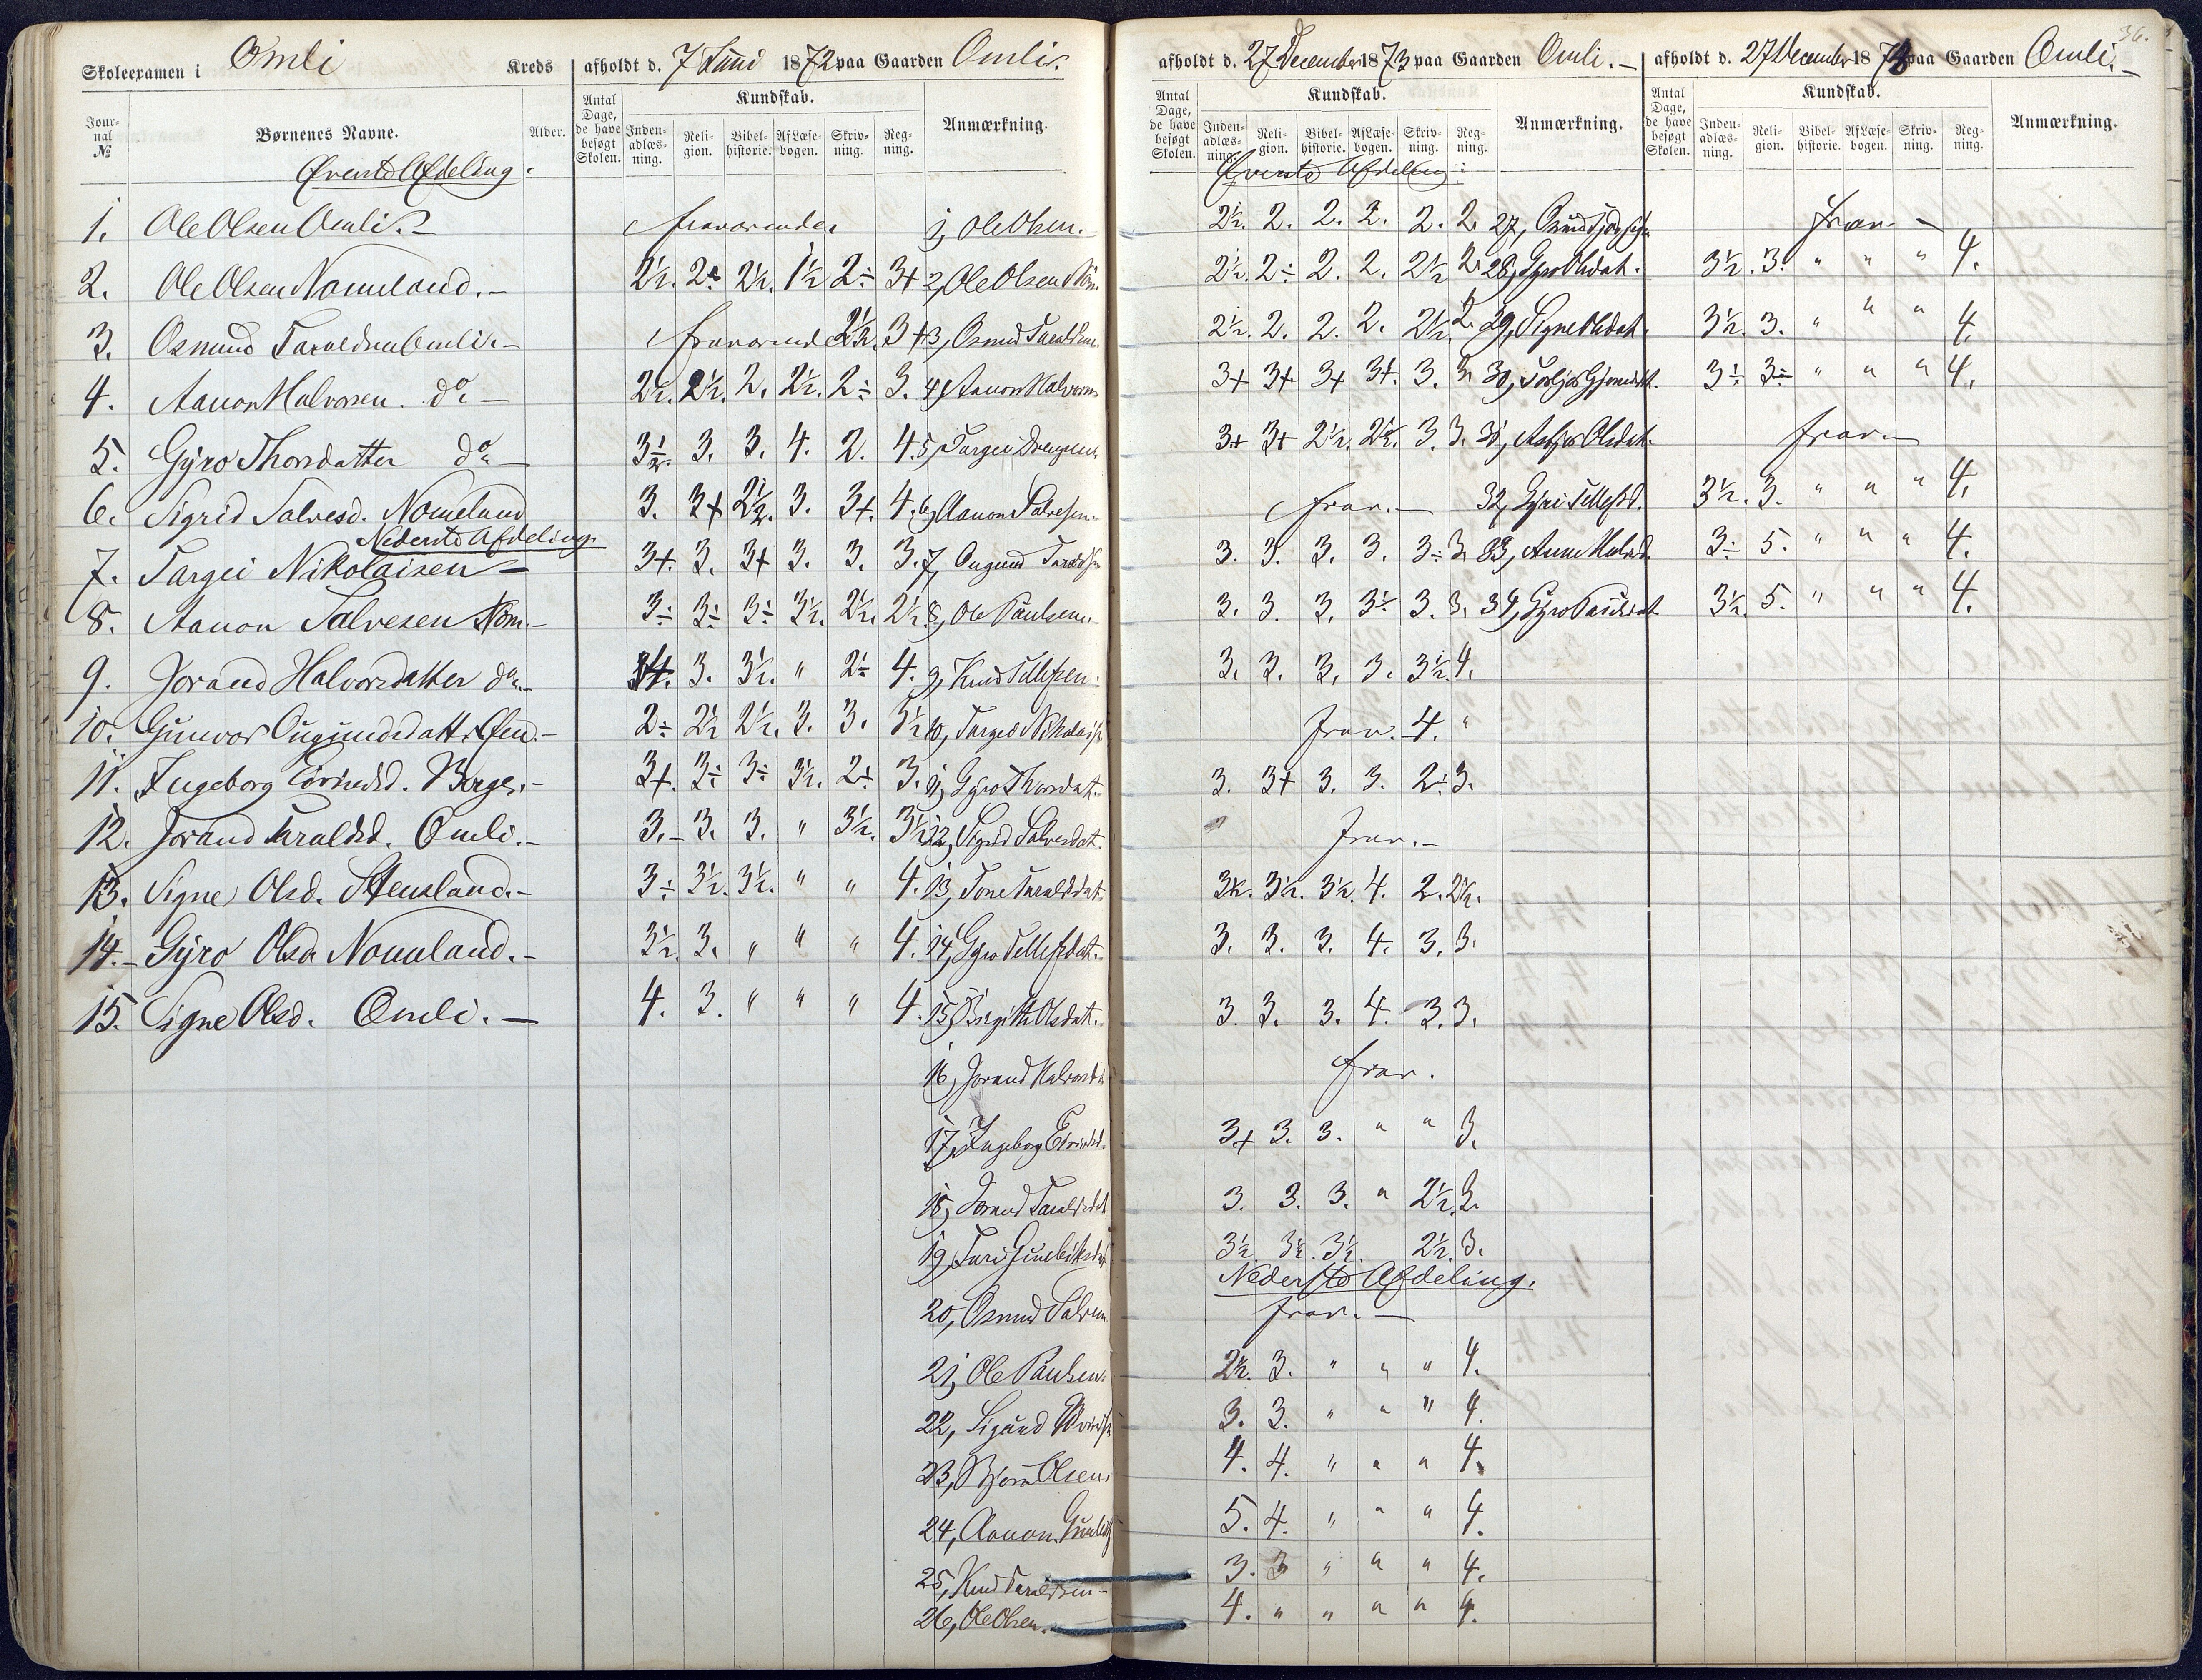 36.
Skoleexamen i Omli Kreds afholdt d. 7 Juni 1872 paa Gaarden Omli.
Journal № Børnenes Navne. Alder. Antal Dage, de have besøgt Skolen. Kundskab. Indenadlæsning. Religion. Bibelhistorie. Af Læsebogen. Skrivning. Regning. Anmærkning.
Øverste Afdeling.
1. Ole Olsen Omli. fraværende 1, Ole Olsen.
2. Ole Olsen Nomeland. 2½. 2 2½. 1½ 2÷ 3+ 2, Ole Olsen Nom.
3. Osmund Taraldsen Omli. fraværend 2½. 3+ 3, Osmund Taraldsen
4. Aanon Halvorsen. do 2½. 2½. 2. 2½. 2÷ 3. 4, Aanon Halvorsen
5. Gyro Thorsdatter do 3½. 3. 3. 4. 2. 4. 5, Targei
6. Sigrid Salvesd. Nomeland 3. 3+ 2½. 3. 3+. 4. 6, Aanon Salvesen.
Nederste Afdeling.
7. Targei Nikolaisen 3+. 3. 3+ 3. 3. 3. 7, Ougund
8. Aanon Salvesen Nom. 3÷ 3÷ 3÷ 3½. 2½. 2½. 8, Ole Paulsen.
9. Jorand Halvorsdatter do. 3+. 3. 3½. " 2÷ 4. 9, Knud Tellefsen.
10. Gunvor Ougundsdatt. 2÷ 2½ 2½. 3. 3. 3½ 10, Targei Nikolais
11. Ingeborg Eivindsd. Berge. 3+. 3÷ 3÷ 3½. 2+. 3. 11, Gyro Thorsdat.
12. Jorand Taraldsd. Omli. 3. 3. 3. " 3½. 3½ 12, Sigrid Salvesdat.
13. Signe Olsd. Stensland. 3÷ 3½. 3½. " " 4. 13, Tone Taraldsdat.
14. Gyro Olsd Nomeland. 3½. 3. " " " 4. 14, Gyro Tellefsdat.
15. Signe Olsd. Omli. 4. 3. " " " 4. 15, Birgitte Olsdat.
16, Jorand Halvorsd
17, Ingeborg Eivindsd.
18, Jorand Taraldsdat
19, Turi
20, Osmund Salvesen
21, Ole Paulsen.
22, Sigurd
23, Bjorn Olsen
24, Aanon
25, Knud Taraldsen
26, Ole Olsen.
afholdt d. 27 December 1873 paa Gaarden Omli.
Antal Dage, de have besøgt Skolen. Kundskab. Indenadlæsning. Religion. Bibelhistorie. Af Læsebogen. Skrivning. Regning. Anmærkning.
Øverste Afdeling:
2½. 2. 2. 2. 2. 2. 27,
2½. 2÷ 2. 2. 2½ 2. 28, Gyro Olsdat.
2½. 2. 2. 2. 2½. 2. 29, Signe Olsdat.
3+ 3+ 3+ 3+. 3. 3. 30,
3+ 3+ 2½. 2½. 3. 3. 31, Olsdat.
frav. 32, Gyri Tellefsd.
3. 3. 3. 3. 3÷ 3. 33, Anne Halvd.
3. 3. 3. 3½ 3. 3. 34, Gyro Paulsdat.
3. 3. 3. 3. 3½. 4.
frav. 4. "
3. 3+ 3. 3. 2÷ 3.
frav.
3½. 3½. 3½. 4. 2. 2½.
3. 3. 3. 4. 3. 3.
3. 3. 3. 4. 3. 3.
frav.
3+ 3. 3. " " 3.
3. 3. 3. " 2½. 3.
3½ 3½. 3½. 2½. 3.
Nederste Afdeling.
frav.
2½. 3. " " " 4.
3. 3. " " " 4.
4. 4. " " " 4.
5. 4. " " " 4.
3. 3 " " " 4.
4. " " " " 4.
afholdt d. 27 December 1873 paa Gaarden Omli.
Antal Dage, de have besøgt Skolen. Kundskab. Indenadlæsning. Religion. Bibelhistorie. Af Læsebogen. Skrivning. Regning. Anmærkning.
frav.
3½. 3. " " " 4.
3½. 3. " " " 4.
3÷ 3÷ " " " 4.
frav.
3½. 3. " " " 4.
3÷ 5. " " " 4.
3½. 5. " " " 4.